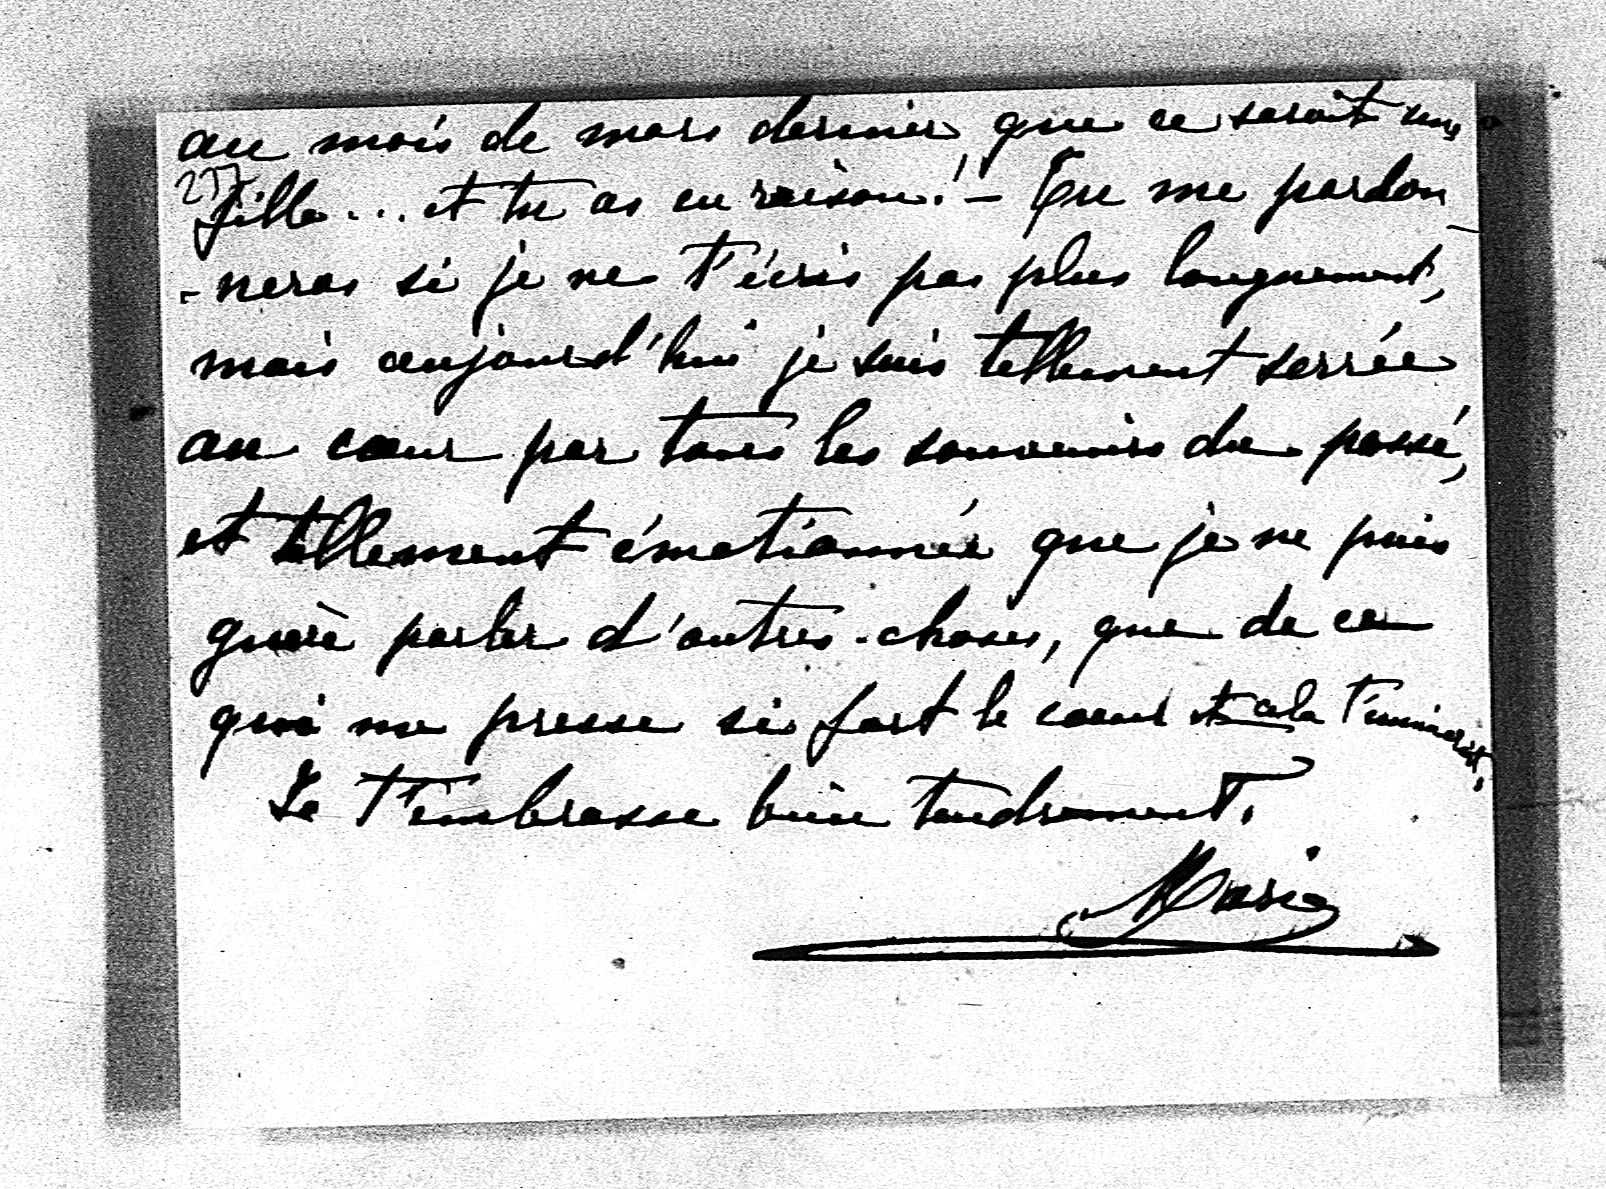 au mois de mars dernier que ce serait une
257
fille... et tu as eu raison! - Tu me pardon
-neras si je ne t'écris pas plus longuement,
mais aujourd'hui je suis tellement serrée
au cœur par tous les souvenirs du passé,
et tellement émotionnée que je ne puis
guère parler d'autres choses, que de ce
qui me presse si fort le cœur et cela t'ennuierait.
Je t'embrasse bien tendrement.
Marie